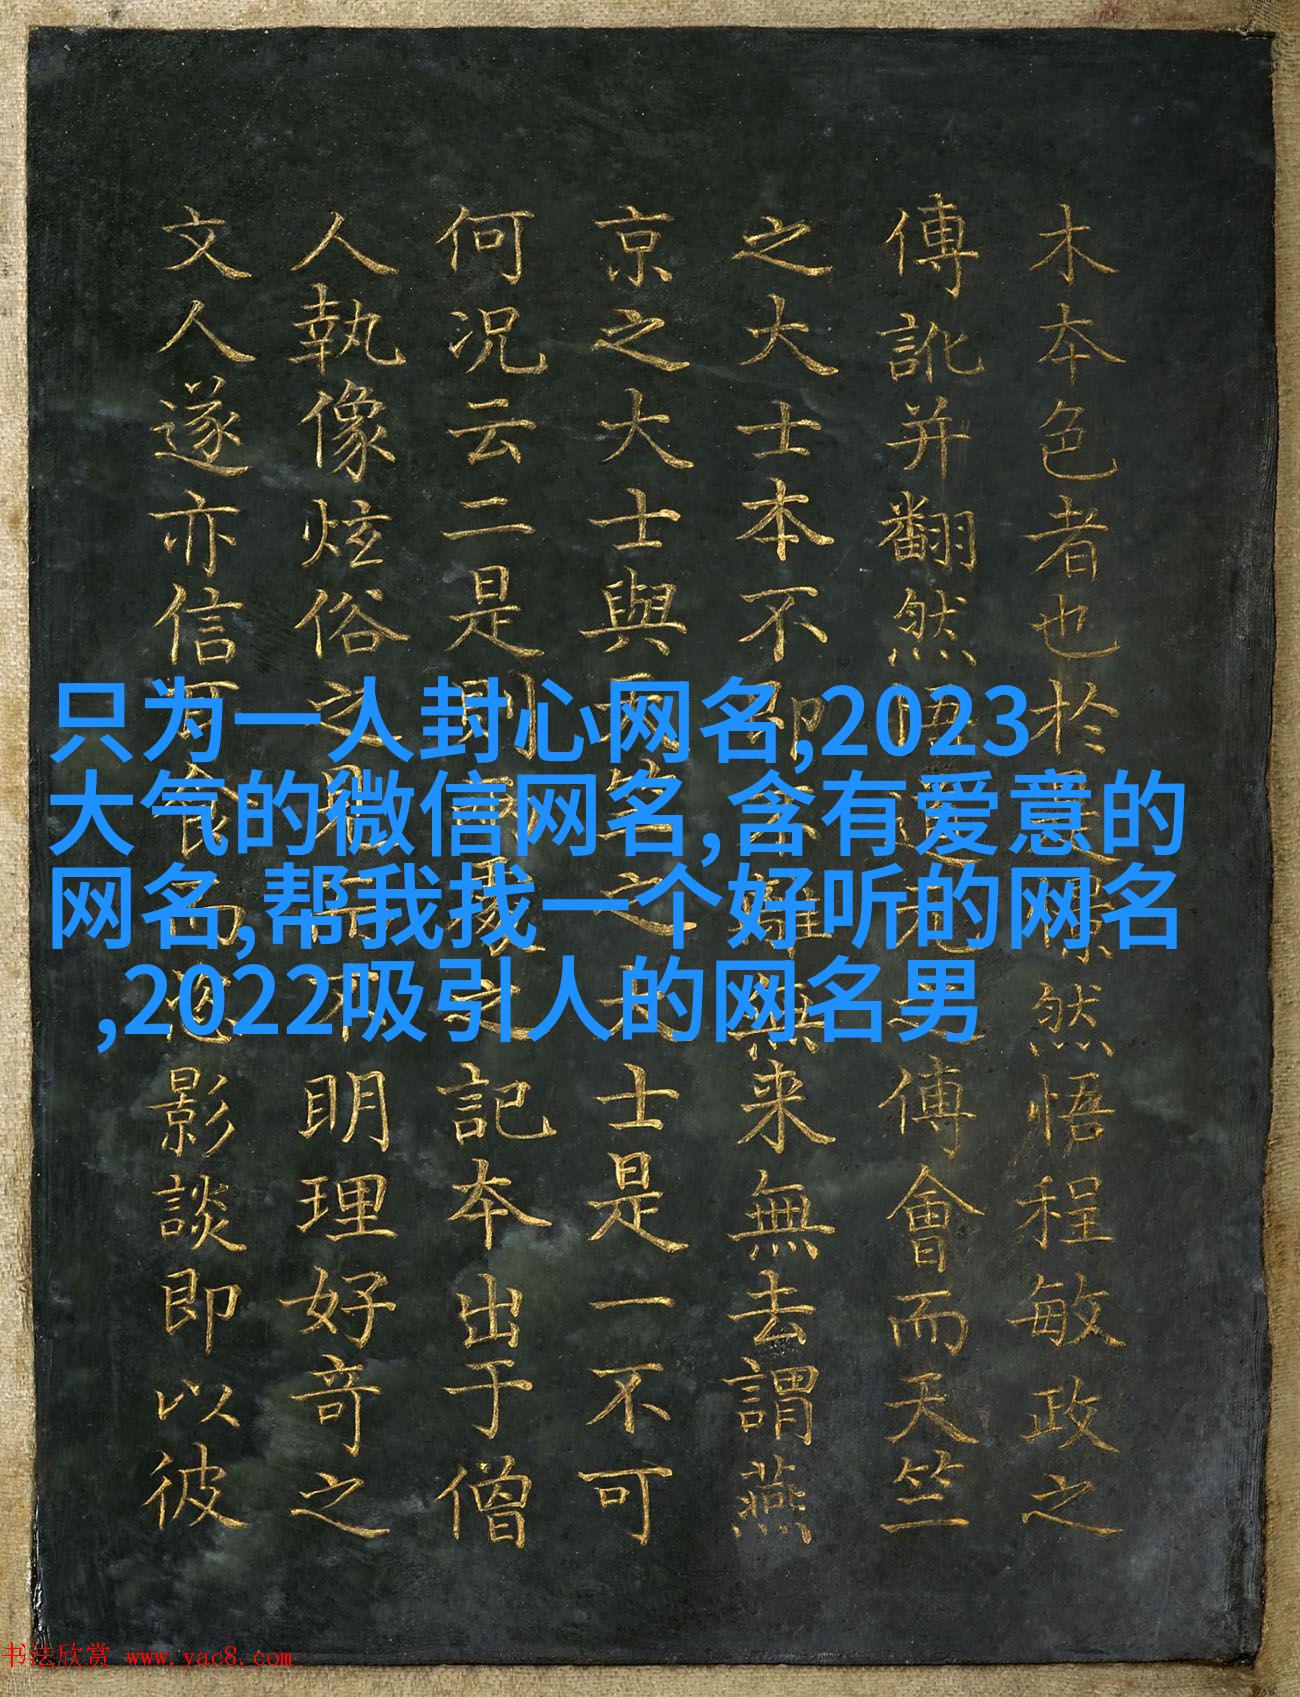 木本色者也於然悟程敏政之
傳訛并翻然悟之傅會而天竺
之大士本不即不離無来無去謂燕
京之大士與天竺之大士是一不可
何況云二是則之記本出于僧
人執像炫俗之而不明理好奇之
文人遂亦信耳食而影談即以彼
只为一人封心网名,2023
大气的微信网名,含有爱意的
网名,帮我找一个好听的网名
,2022吸引人的网名男
书法欣赏 www.yac8.com